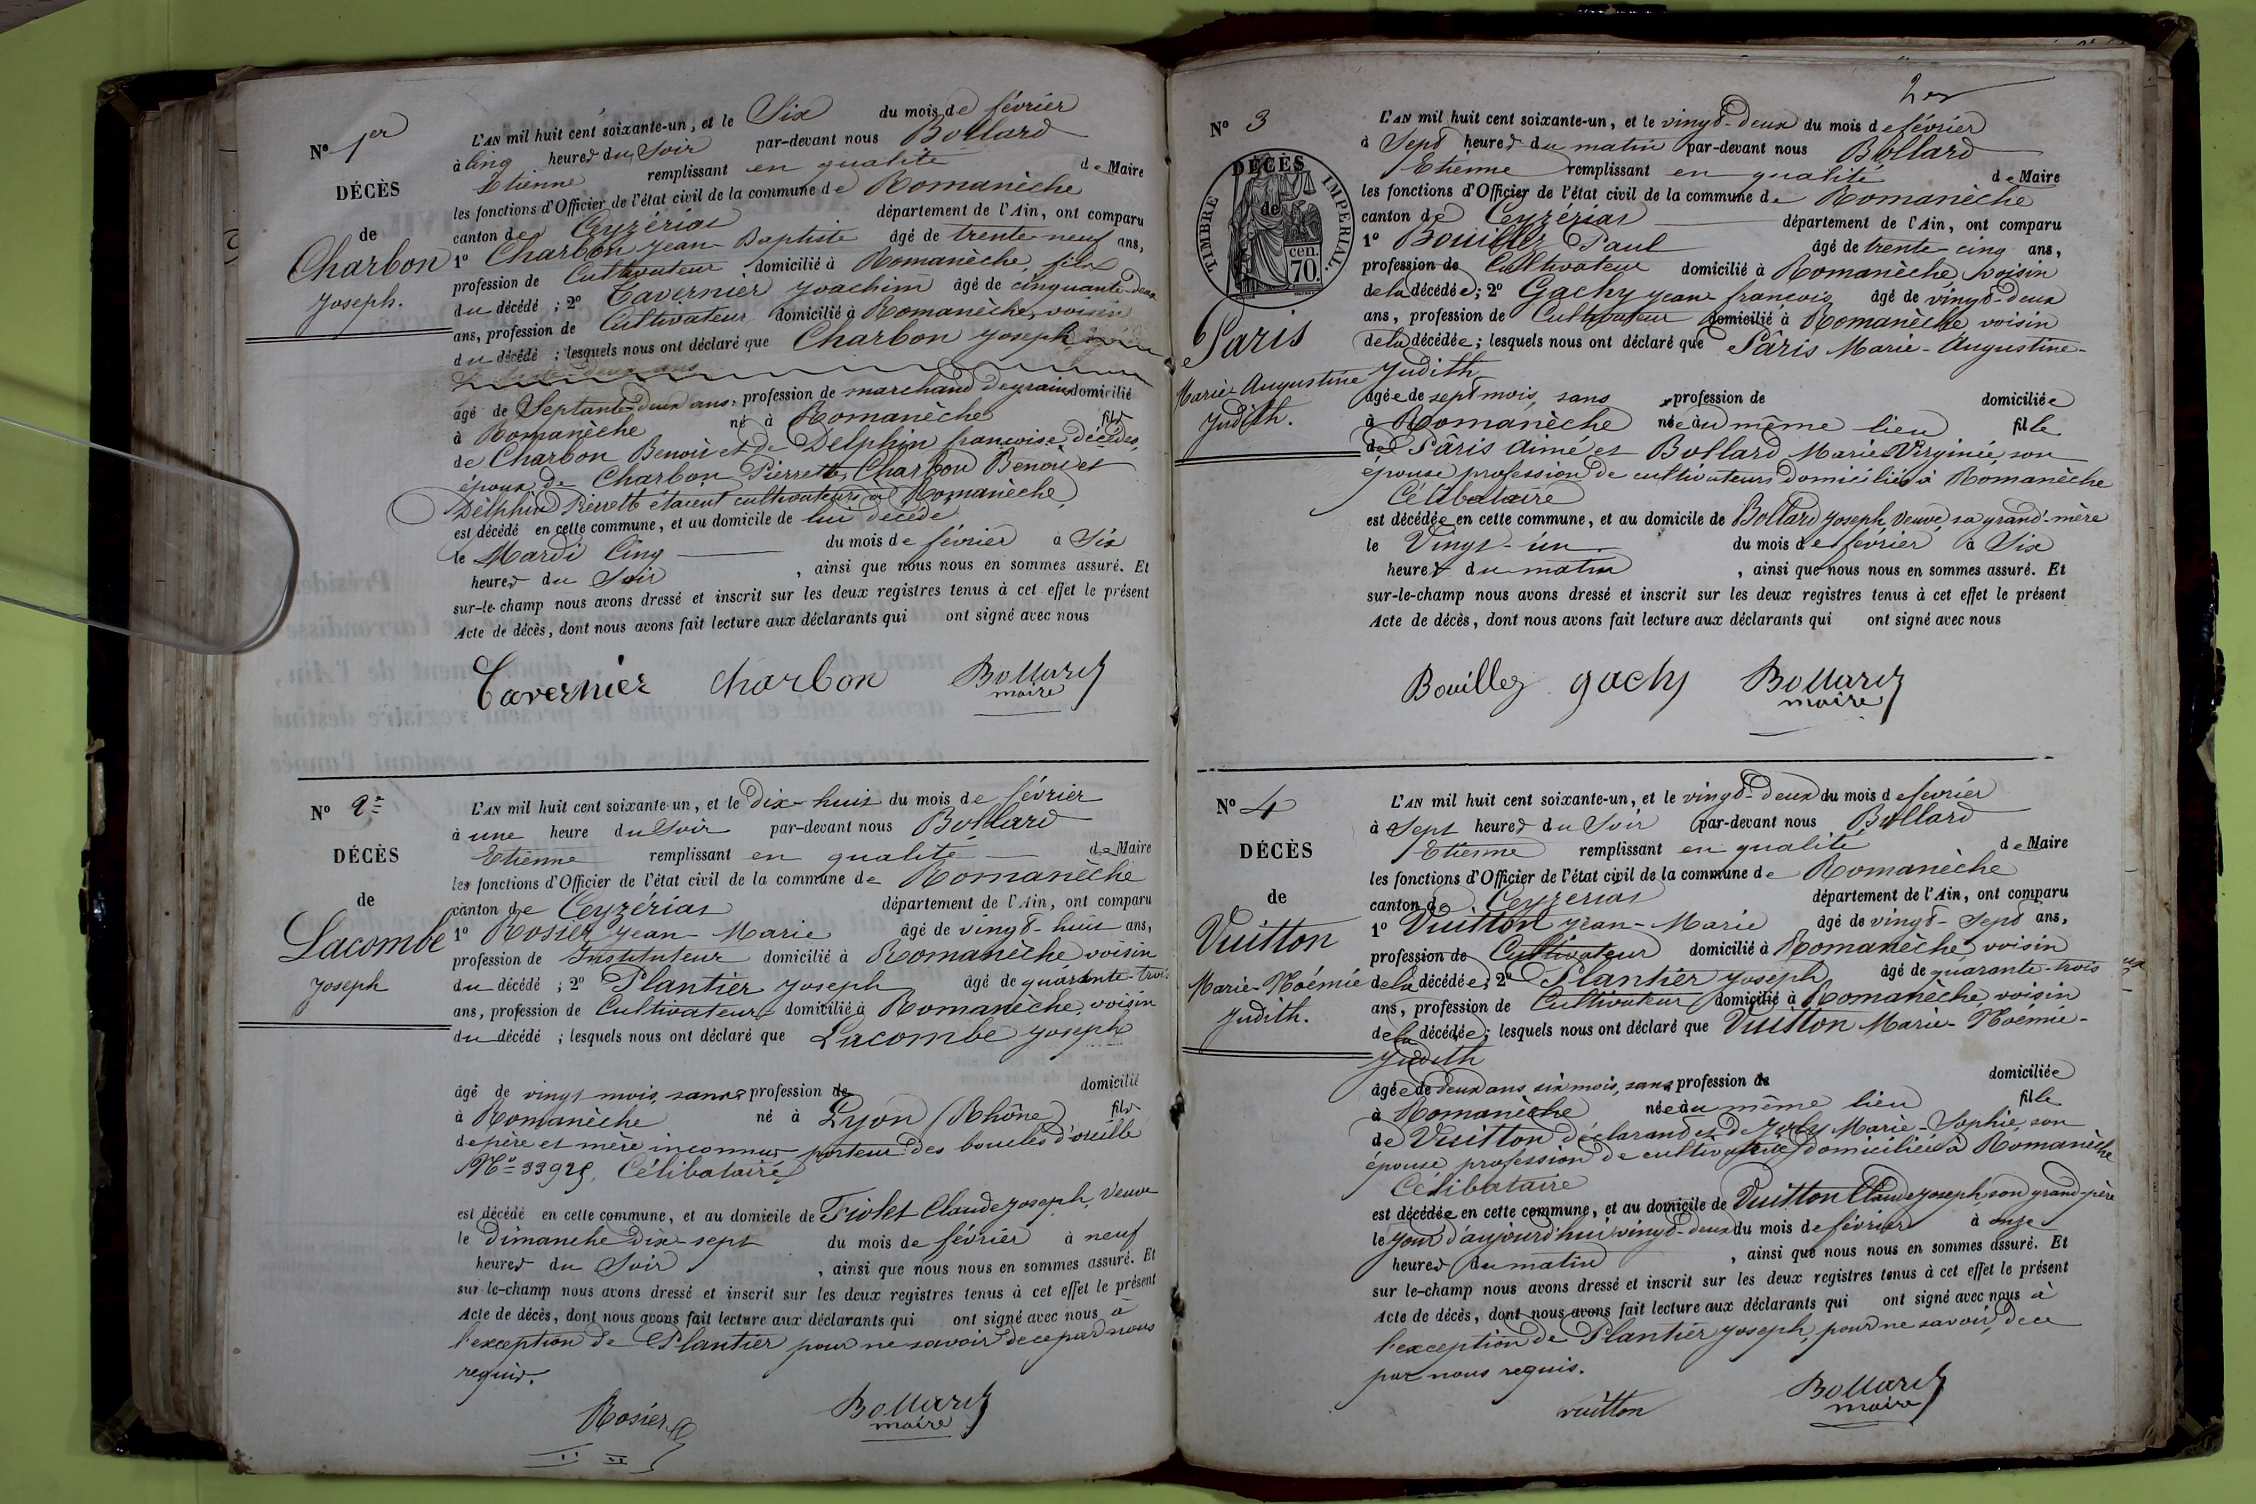 N° 1er
DÉCÈS
de
Charbon
Joseph.
L'AN mil huit cent soixante-un, et le Six du mois de février
à Cinq heures du Soir par-devant nous Bollard
Etienne remplissant en qualité de Maire
les fonctions d'Officier de l'état civil de la commune de Romanèche
canton de Ceyzériat département de l'Ain, ont comparu
1° Charbon Jean-Baptiste âgé de trente-neuf ans,
profession de Cultivateur domicilié à Romanèche, fils
du décédé ; 2° Tavernier Joachim âgé de cinquante-deux
ans, profession de Cultivateur domicilié à Romanèche, voisin
du décédé ; lesquels nous ont déclaré que Charbon Joseph
âgé de Septante-deux ans, profession de marchand de grains domicilié
à Romanèche né à Romanèche fils
de Charbon Benoit et de Delphin françoise, décédés,
époux de Charbon Pierrette, Charbon Benoit et
Delphin Pierrette étaient cultivateurs à Romanèche
est décédé en cette commune, et au domicile de lui décédé
le Mardi Cinq du mois de février à Six
heures du Soir , ainsi que nous nous en sommes assuré. Et
sur-le-champ nous avons dressé et inscrit sur les deux registres tenus à cet effet le présent
Acte de décès, dont nous avons fait lecture aux déclarants qui ont signé avec nous
Tavernier Charbon Bollard
maire
N° 2e
DÉCÈS
de
Lacombe
Joseph
L'AN mil huit cent soixante-un, et le dix-huit du mois de février
à une heure du Soir par-devant nous Bollard
Etienne remplissant en qualité de Maire
les fonctions d'Officier de l'état civil de la commune de Romanèche
canton de Ceyzériat département de l'Ain, ont comparu
1° Rosier Jean-Marie âgé de vingt-huit ans,
profession de Instituteur domicilié à Romanèche voisin
du décédé ; 2° Plantier Joseph âgé de quarante-trois
ans, profession de Cultivateur domicilié à Romanèche, voisin
du décédé ; lesquels nous ont déclaré que Lacombe Joseph
âgé de vingt mois, sans profession de domicilié
à Romanèche né à Lyon (Rhône) fils
de père et mère inconnus porteur des boucles d'oreille
N° 33925, Célibataire
est décédé en cette commune, et au domicile de Fiolet Claude Joseph, Veuve
le dimanche dix-sept du mois de février à neuf
heures du Soir , ainsi que nous nous en sommes assuré. Et
sur-le-champ nous avons dressé et inscrit sur les deux registres tenus à cet effet le présent
Acte de décès, dont nous avons fait lecture aux déclarants qui ont signé avec nous à
l'exception de Plantier pour ne savoir de ce par nous
requis.
Rosier Bollard
maire
N° 3
DÉCÈS
de
TIMBRE IMPÉRIAL.
70 cen.
Pâris
Marie-Augustine
Judith.
L'AN mil huit cent soixante-un, et le vingt-deux du mois de février
à Sept heures du matin par-devant nous Bollard
Etienne remplissant en qualité de Maire
les fonctions d'Officier de l'état civil de la commune de Romanèche
canton de Ceyzériat département de l'Ain, ont comparu
1° Bouillez Paul âgé de trente-cinq ans,
profession de Cultivateur domicilié à Romanèche, voisin
de la décédée ; 2° Gachy Jean-françois âgé de vingt-deux
ans, profession de Cultivateur domicilié à Romanèche voisin
de la décédée ; lesquels nous ont déclaré que Pâris Marie-Augustine-
Judith
âgée de sept mois, sans profession de domiciliée
à Romanèche née au même lieu fille
de Pâris Aimé et Bollard Marie-Virginie, son
épouse profession de cultivateurs domiciliés à Romanèche
Célibataire
est décédée en cette commune, et au domicile de Bollard Joseph, Veuve, sa grand'mère
le Vingt-un du mois de février à Six
heures du matin , ainsi que nous nous en sommes assuré. Et
sur-le-champ nous avons dressé et inscrit sur les deux registres tenus à cet effet le présent
Acte de décès, dont nous avons fait lecture aux déclarants qui ont signé avec nous
Bouillez gachy Bollard
maire
N° 4
DÉCÈS
de
Vuitton
Marie-Noémie
Judith.
L'AN mil huit cent soixante-un, et le vingt-deux du mois de février
à Sept heures du Soir par-devant nous Bollard
Etienne remplissant en qualité de Maire
les fonctions d'Officier de l'état civil de la commune de Romanèche
canton de Ceyzériat département de l'Ain, ont comparu
1° Vuitton Jean-Marie âgé de vingt-Sept ans,
profession de Cultivateur domicilié à Romanèche voisin
de la décédée ; 2° Plantier Joseph âgé de quarante-trois
ans, profession de Cultivateur domicilié à Romanèche, voisin
de la décédée ; lesquels nous ont déclaré que Vuitton Marie-Noémie-
Judith
âgée de deux ans six mois, sans profession de domiciliée
à Romanèche née au même lieu fille
de Vuitton déclarant et de Marie-Sophie, son
épouse, profession de domiciliés à Romanèche
Célibataire
est décédée en cette commune, et au domicile de Vuitton Claude Joseph, son grand-père
le jour d'aujourd'hui vingt-deux du mois de février à onze
heures du matin , ainsi que nous nous en sommes assuré. Et
sur le-champ nous avons dressé et inscrit sur les deux registres tenus à cet effet le présent
Acte de décès, dont nous avons fait lecture aux déclarants qui ont signé avec nous à
l'exception de Plantier Joseph, pour ne savoir, de ce
par nous requis.
vuitton Bollard
maire